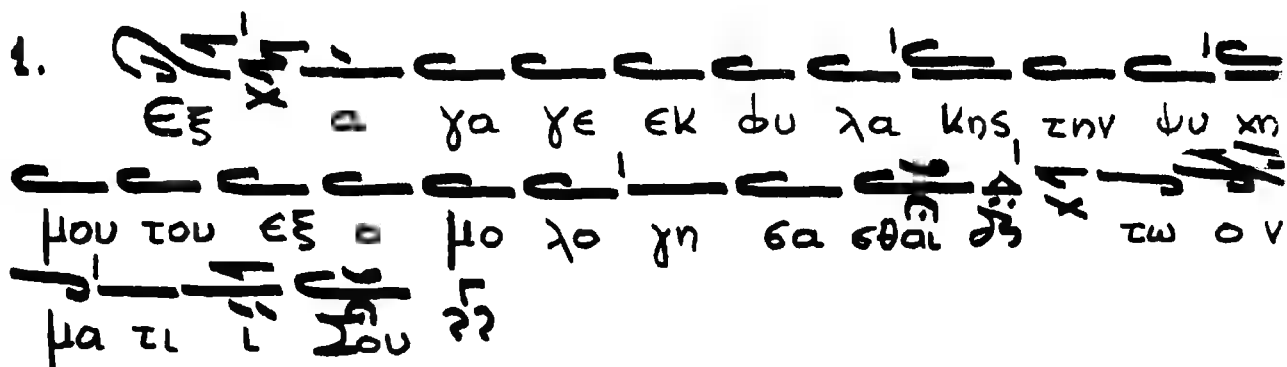 1. Εξ α γα γε εκ φυ λα κης την ψυ χη
μου του εξ ο μο λο γη σα σθαι τω ο ν
μα τι ι Σου